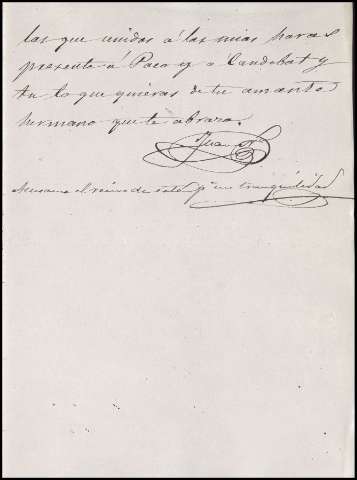 las que unidas á las mias haras
presente á Paco y á Candobat y
tu lo que quieras de tu amante
hermano que te abraza.
Juan
el de esta pª tranquilidad